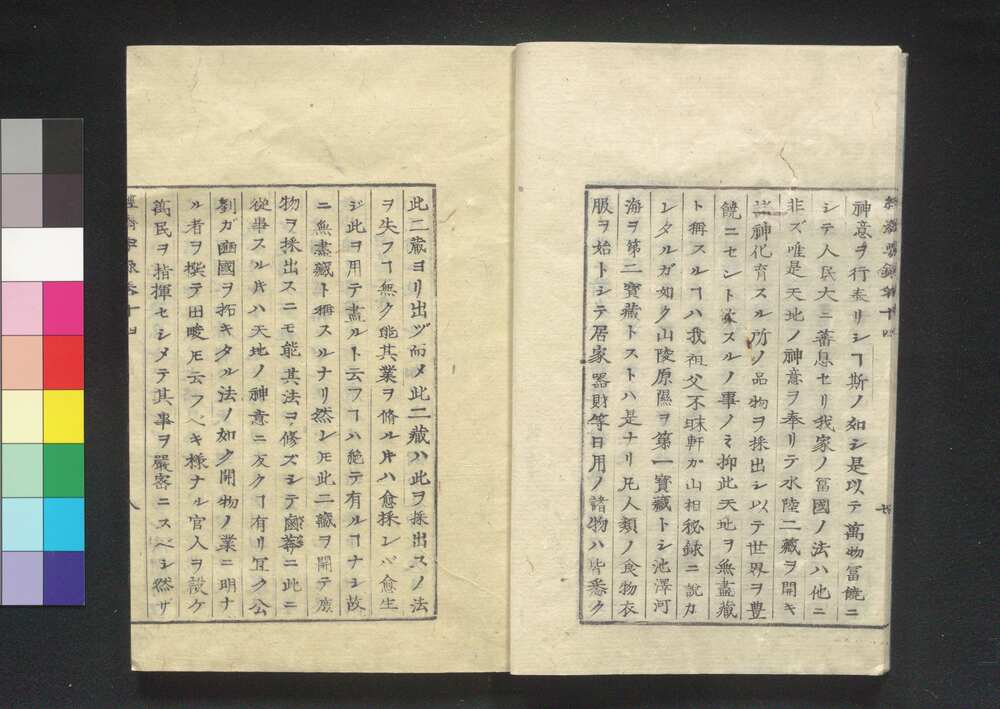 神意ヲ行奉リシヿ斯ノ如シ是以テ萬物富饒ニ
シテ人民大ニ蕃息セリ我家ノ冨國ノ法ハ他ニ
非ズ唯是天地ノ神意ヲ奉リテ水陸二藏ヲ開キ
諸神化育スル所ノ品物ヲ採出シ以テ世界ヲ豊
饒ニセント欲スルノ事ノミ抑此天地ヲ無盡藏
ト稱スルヿハ我祖父不昧軒ガ山相秘録ニ說カ
レタルガ如ク山陵原隰ヲ第一寶藏トシ池澤河
海ヲ第二寶藏トストハ是ナリ凡人類ノ食物衣
服ヲ始トシテ居家器財等日用ノ諸物ハ皆悉ク
此二藏ヨリ出ヅ而メ此二藏ハ此ヲ採出スノ法
ヲ失フヿ無ク能其業ヲ脩ル片ハ愈採レバ愈生
ジ此ヲ用テ盡ルト云フヿハ絶テ有ルヿナシ故
ニ無盡藏ト稱スルナリ然レ𪜈此二藏ヲ開テ
物ヲ採出スニモ能其法ヲ修ズシテ鹵莽ニ此ニ
從事スル片ハ天地ノ神意ニ反クヿ有リ冝ク公
劉ガ豳國ヲ拓キタル法ノ如ク開物ノ業ニ明ナ
ル者ヲ撰テ田畯𪜈云フベキ様ナル官人ヲ設ケ
萬民ヲ指揮セシメテ其事ヲ嚴密ニスベシ然ザ